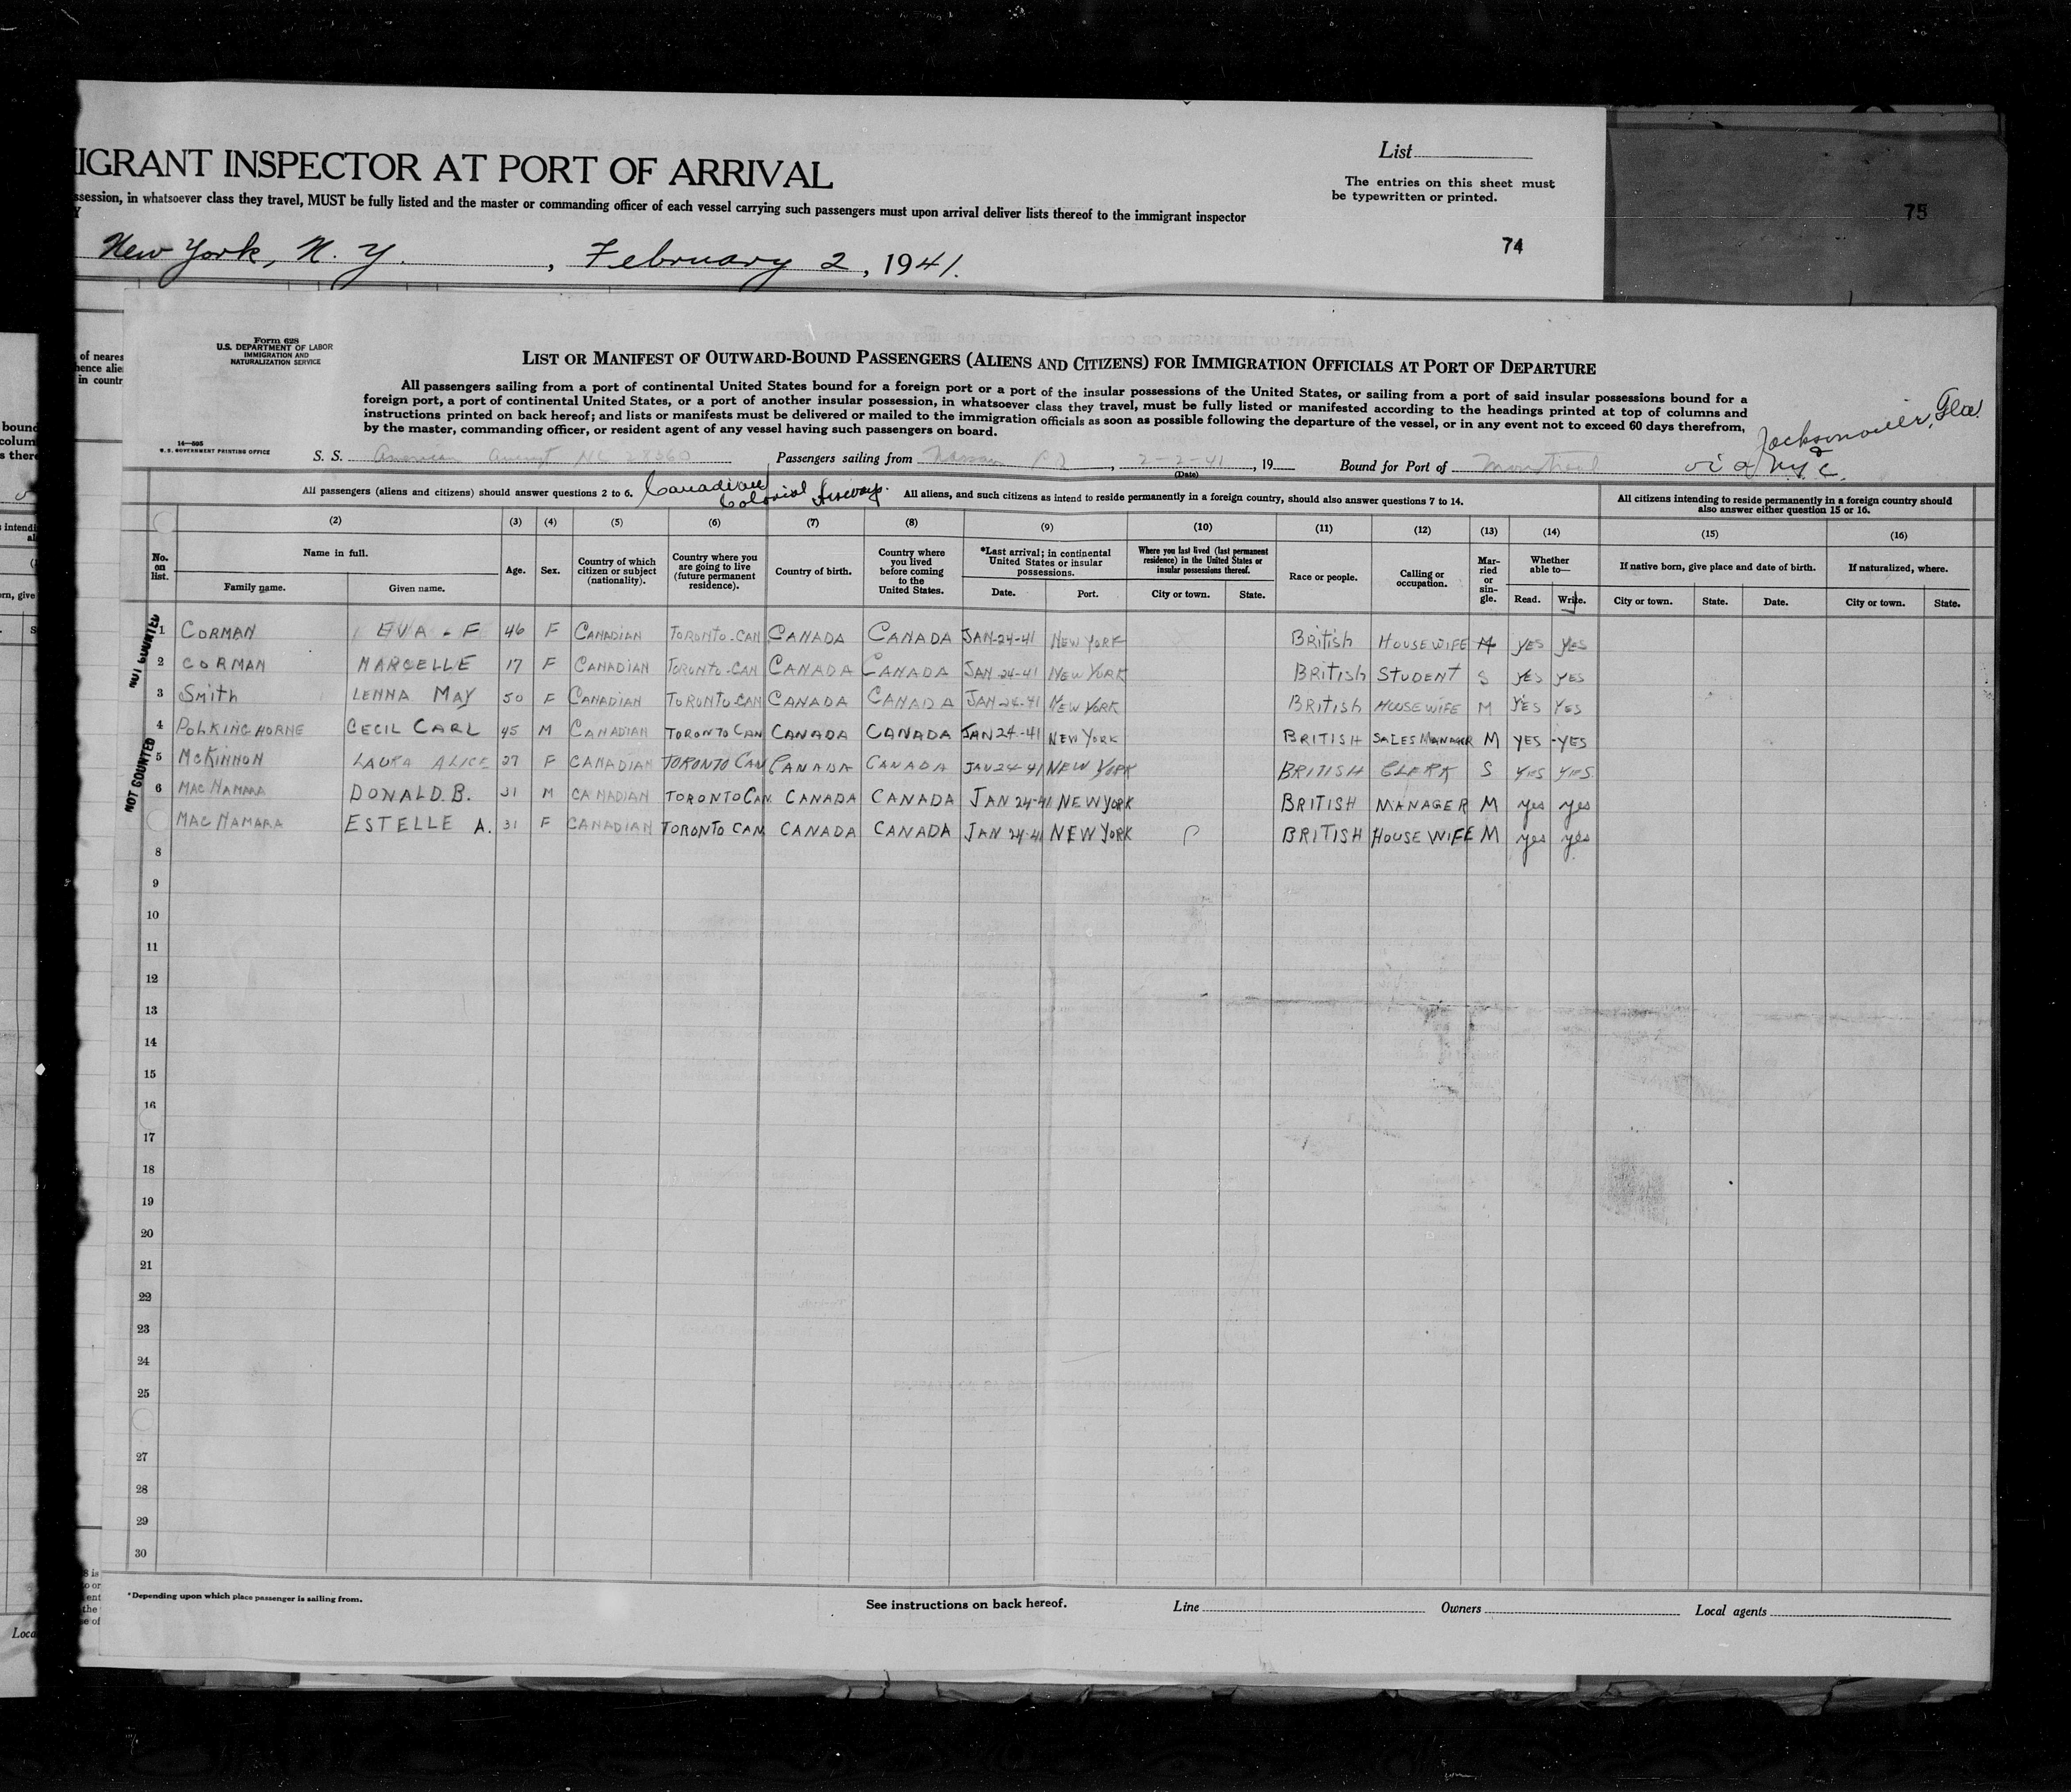 IGRANT INSPECTOR AT PORT OF ARRIVAL
List
The entries on this sheet must
be typewritten or printed.
ssession, in whatsoever class they travel, MUST be fully listed and the master or commanding officer of each vessel carrying such passengers must upon arrival deliver lists thereof to the immigrant inspector
Y
New York, N. Y. , February 2, 1941.
74
75
of neares
hence alie
in countr
Form 628
U.S. DEPARTMENT OF LABOR
IMMIGRATION AND
NATURALIZATION SERVICE
LIST OR MANIFEST OF OUTWARD-BOUND PASSENGERS (ALIENS AND CITIZENS) FOR IMMIGRATION OFFICIALS AT PORT OF DEPARTURE
All passengers sailing from a port of continental United States bound for a foreign port or a port of the insular possessions of the United States, or sailing from a port of said insular possessions bound for a
foreign port, a port of continental United States, or a port of another insular possession, in whatsoever class they travel, must be fully listed or manifested according to the headings printed at top of columns and
instructions printed on back hereof; and lists or manifests must be delivered or mailed to the immigration officials as soon as possible following the departure of the vessel, or in any event not to exceed 60 days therefrom,
by the master, commanding officer, or resident agent of any vessel having such passengers on board.
14—895
U. S. GOVERNMENT PRINTING OFFICE
Jacksonville, Fla.
S. S. American NC 28360 Passengers sailing from Nassau , 2-2-41 , 19 Bound for Port of Montreal via NYC
(Date)
Canadian Colonial Airways.
All passengers (aliens and citizens) should answer questions 2 to 6. All aliens, and such citizens as intend to reside permanently in a foreign country, should also answer questions 7 to 14. All citizens intending to reside permanently in a foreign country should
also answer either question 15 or 16.
(2) (3) (4) (5) (6) (7) (8) (9) (10) (11) (12) (13) (14) (15) (16)
No. on list. Name in full. Family name. Given name. Age. Sex. Country of which citizen or subject (nationality). Country where you are going to live (future permanent residence). Country of birth. Country where you lived before coming to the United States. *Last arrival; in continental United States or insular possessions. Date. Port. Where you last lived (last permanent residence) in the United States or insular possessions thereof. City or town. State. Race or people. Calling or occupation. Married or single. Whether able to— Read. Write. If native born, give place and date of birth. City or town. State. Date. If naturalized, where. City or town. State.
NOT COUNTED
1 CORMAN EVA - F 46 F CANADIAN TORONTO-CAN CANADA CANADA JAN-24-41 NEW YORK British HOUSEWIFE M YES YES
2 CORMAN MARCELLE 17 F CANADIAN TORONTO-CAN CANADA CANADA JAN 24-41 NEW YORK British STUDENT S YES YES
3 Smith LENNA MAY 50 F CANADIAN TORONTO-CAN CANADA CANADA JAN-24-41 NEW YORK British HOUSEWIFE M YES YES
4 POLKINGHORNE CECIL CARL 45 M CANADIAN TORONTO CAN CANADA CANADA JAN 24-41 NEW YORK BRITISH SALES MANAGER M YES YES
NOT COUNTED
5 McKINNON LAURA ALICE 27 F CANADIAN TORONTO CAN CANADA CANADA JAN 24-41 NEW YORK BRITISH CLERK S YES YES
6 MAC NAMARA DONALD B. 31 M CANADIAN TORONTO CAN CANADA CANADA JAN 24-41 NEW YORK BRITISH MANAGER M yes yes
MAC NAMARA ESTELLE A. 31 F CANADIAN TORONTO CAN CANADA CANADA JAN 24-41 NEW YORK BRITISH HOUSEWIFE M yes yes
8
9
10
11
12
13
14
15
16
17
18
19
20
21
22
23
24
25
27
28
29
30
*Depending upon which place passenger is sailing from.
See instructions on back hereof. Line Owners Local agents